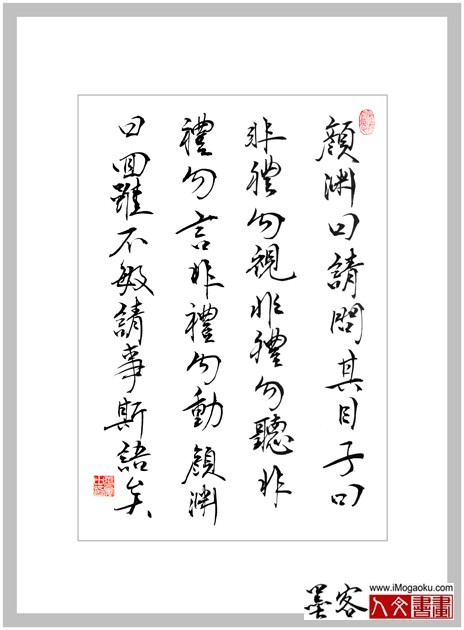 顏渊曰請問其目子曰
非禮勿視非禮勿聽非
禮勿言非禮勿動顏渊
曰回雖不敏請事斯語矣
墨客
www.iMogaoku.com
人文書畫